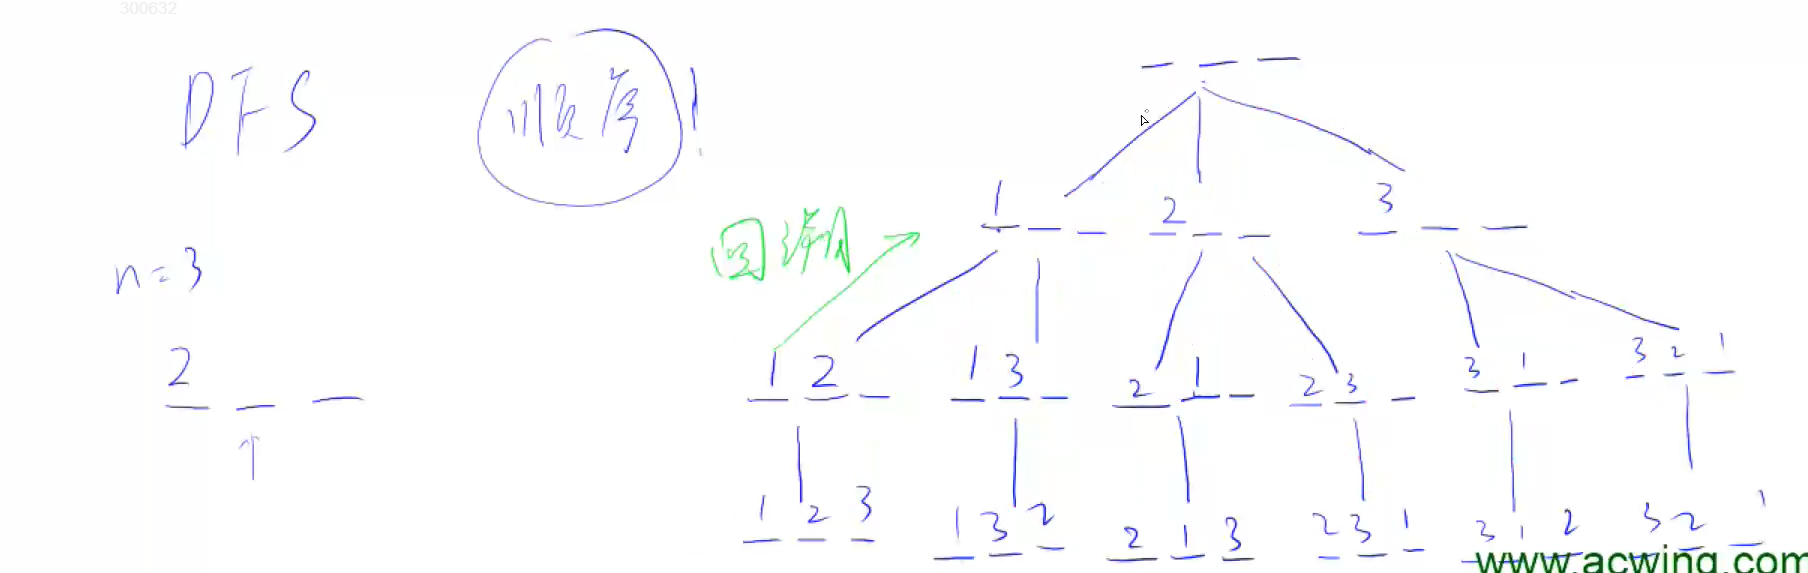 300632
DFS 顺序!
n=3
2 _ _
↑
_ _ _
1 _ _ 2 _ _ 3 _ _
回溯
1 2 _ 1 3 _ 2 1 _ 2 3 _ 3 1 _ 3 2 1
1 2 3 1 3 2 2 1 3 2 3 1 3 1 2 3 2 1
www.acwing.com